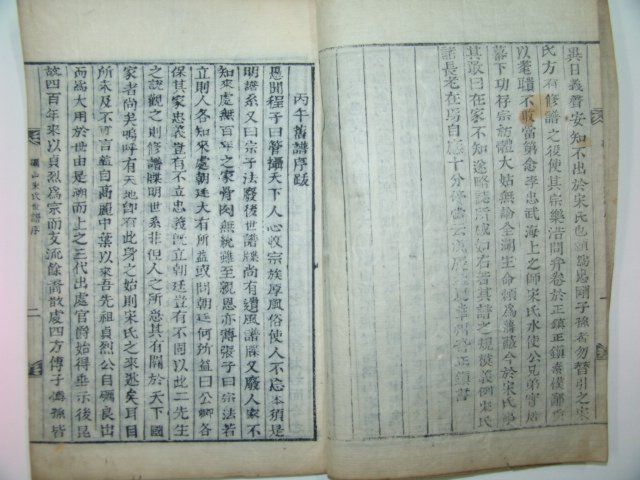 異日義聲安知不出於宋氏也願爲忠剛子孫者勿替引之宋
氏方有修譜之役使其宗樂浩問弁卷於正鎮正鎮素僕鄙
以耄聵不敢當第念李忠武海上之師宋氏水使公兄弟寄
幕下功存宗祊體大姑無論全湖生命頼爲藩蔽今於宋氏
其敢曰在家不知遂略誌所感如右若其譜之規漠義例宋氏
諸長老在焉自應十分修
正鎮書
丙午舊譜序跋
愚聞程子曰管攝天下人心收宗族厚風俗使人不忘本須是
明譜系又曰宗子法廢後世譜牒尚有遺風譜牒又廢人家不
知來處無百年之家骨肉無統雖至親恩亦薄張子曰宗法若
立則人各知來處朝廷大有所益或問朝廷何所益曰公卿各
保其家忠義豈有不立忠義旣立朝廷豈有不固以此二先生
之說觀之則修譜牒明世系非但人之所急其有關於天下國
家者尚矣嗚呼有天地卽有此身之始則宋氏之來逖矣耳目
所未及不可言盖自高麗中葉以來吾先祖貞烈公自礪良出
而爲大用於世由是溯而上之三代出處官爵始得垂示後昆
故四百年來以貞烈爲宗而支流餘裔散處四方傳子
孫皆
礪山宋氏世譜序
二